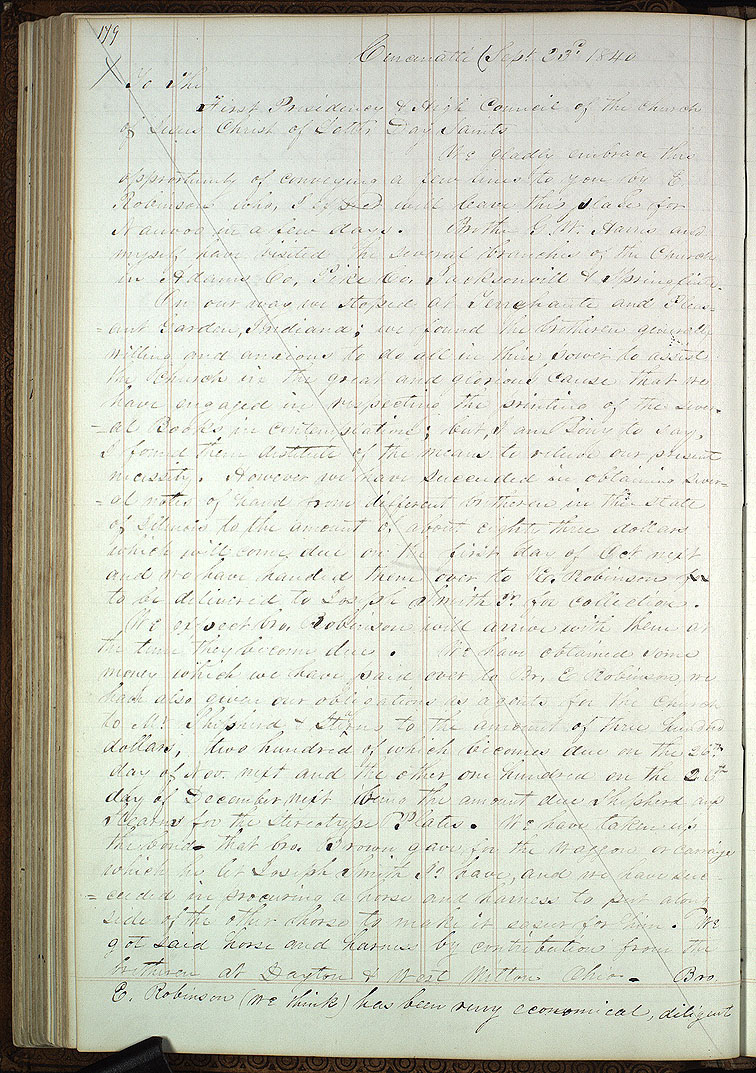 179
Cincinatti Sept 23d. 1840
To the
First Presidency & High Council of the Church
of Jesus Christ of Latter Day Saints
We gladly embrace this
opportunity of conveying a few lines to you by E.
Robinson who, I will leave this place for
Nauvoo in a few days. Brother G. W. Harris and
myself have visited the several branches of the Church
in Adams Co, Pike Co, Jacksonvill & Springfield.
On our way we stoped at and Pleas-
=ant Garden, Indiana; we found the bretheren generaly
willing and anxious to do all in thier power to assist
the Church in the great and glorious cause that we
have engaged in, respecting the printing of the sever-
=al Books in contemplation; but, I am sory to say,
I found them destitute of the means to releive our present
necessity. However we have succeeded in obtaining sever-
=al notes of hand from different bretheren in the State
of Illinois to the amount of about eighty three dollars
which will come due on the first day of Oct next
and we have handed them over to E. Robinson
to be delivered to Joseph Smith Jr. for collection.
We expect bro. Robinson will arrive with them at
the time they become due. We have obtained some
money which we have paid over to Br. E Robinson, we
have also given our obligations as agents for the Church
to Mr. Shepherd & Sterns to the amount of three hundred
dollars, two hundred of which becomes due on the 26th
day of Nov. next and the other one hundred on the 26th
day of December next being the amount due Shepherd and
Stearns for the Stereotype Plates. We have taken up
the bond that bro. Brown gave for the Waggon or carriage
which he let Joseph Smith Jr. have, and we have suc-
=ceeded in procuring a horse and harness to put along
side of the other horse to make it easier for him. We
got said horse and harness by contribution from the
bretheren at Dayton & West Milton Ohio. Bro.
E. Robinson (we think) has been very economical, diligent